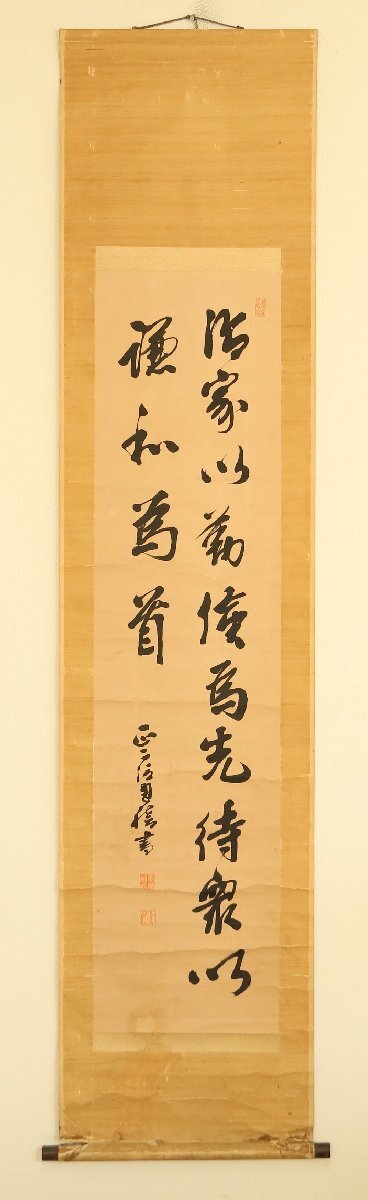 治家以勤倹為先待衆以
謙和為首
正二位
書